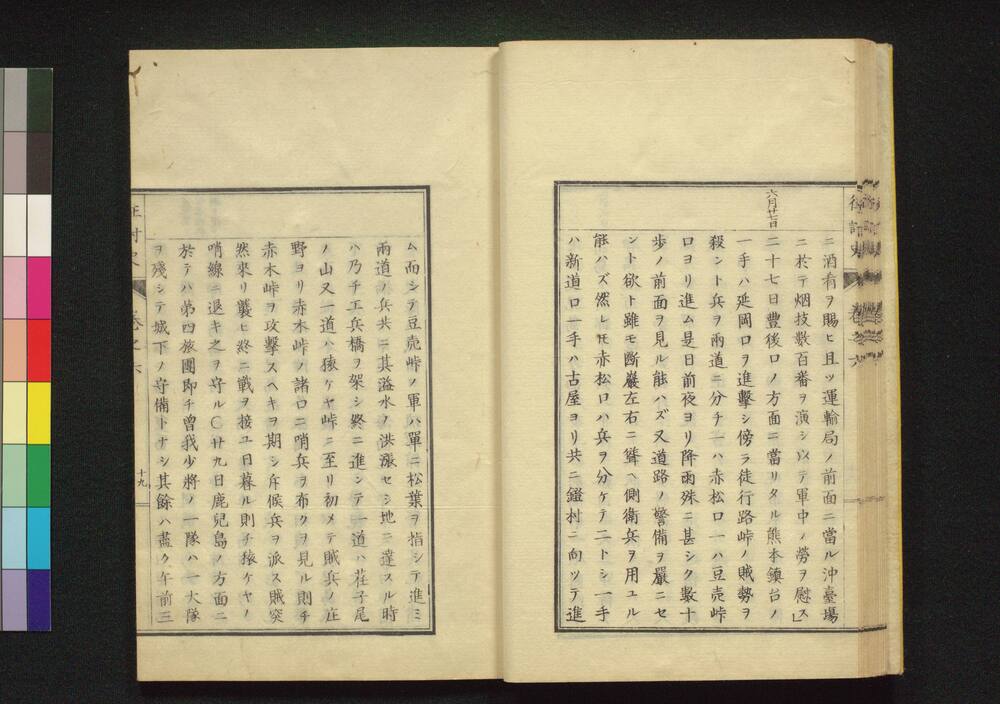 六月廿七日
ニ酒肴ヲ賜ヒ且ツ運輸局ノ前面ニ當ル沖臺場
ニ於テ烟技数百番ヲ演シ以テ軍中ノ勞ヲ慰ス」
二十七日豊後口ノ方面ニ當リタル熊本鎮台ノ
一手ハ延岡口ヲ進擊シ傍ラ徒行路峠ノ賊勢ヲ
殺ント兵ヲ兩道ニ分チ一ハ赤松口一ハ豆売峠
口ヨリ進ム是日前夜ヨリ降雨殊ニ甚シク數十
歩ノ前面ヲ見ル能ハズ又道路ノ警備ヲ嚴ニセ
ント欲ト雖モ断巖左右ニ聳ヘ側衛兵ヲ用ユル
能ハズ然レ𪜈赤松口ハ兵ヲ分ケテ二トシ一手
ハ新道口一手ハ古屋ヨリ共ニ鐙村ニ向ツテ進
ム而シテ豆売峠ノ軍ハ單ニ松葉ヲ指シテ進ミ
兩道ノ兵共ニ其溢水ノ洪漲セシ地ニ達スル時
ハ乃チ工兵橋ヲ架シ終ニ進ンテ一道ハ荘子尾
ノ山又一道ハ猿ケヤ峠ニ至リ初メテ賊兵ノ庄
野ヨリ赤木峠ノ諸口ニ哨兵ヲ布クヲ見ル則チ
赤木峠ヲ攻擊スヘキヲ期シ斥候兵ヲ派ス賊突
然來リ襲ヒ終ニ戰ヲ接ユ日暮ル則チ猿ケヤノ
哨線ニ退キ之ヲ守ル○廿九日鹿兒島ノ方面ニ
於テハ第四旅團即チ曽我少將ノ一隊ハ一大隊
ヲ殘シテ城下ノ守備トナシ其餘ハ盡ク午前三
十九